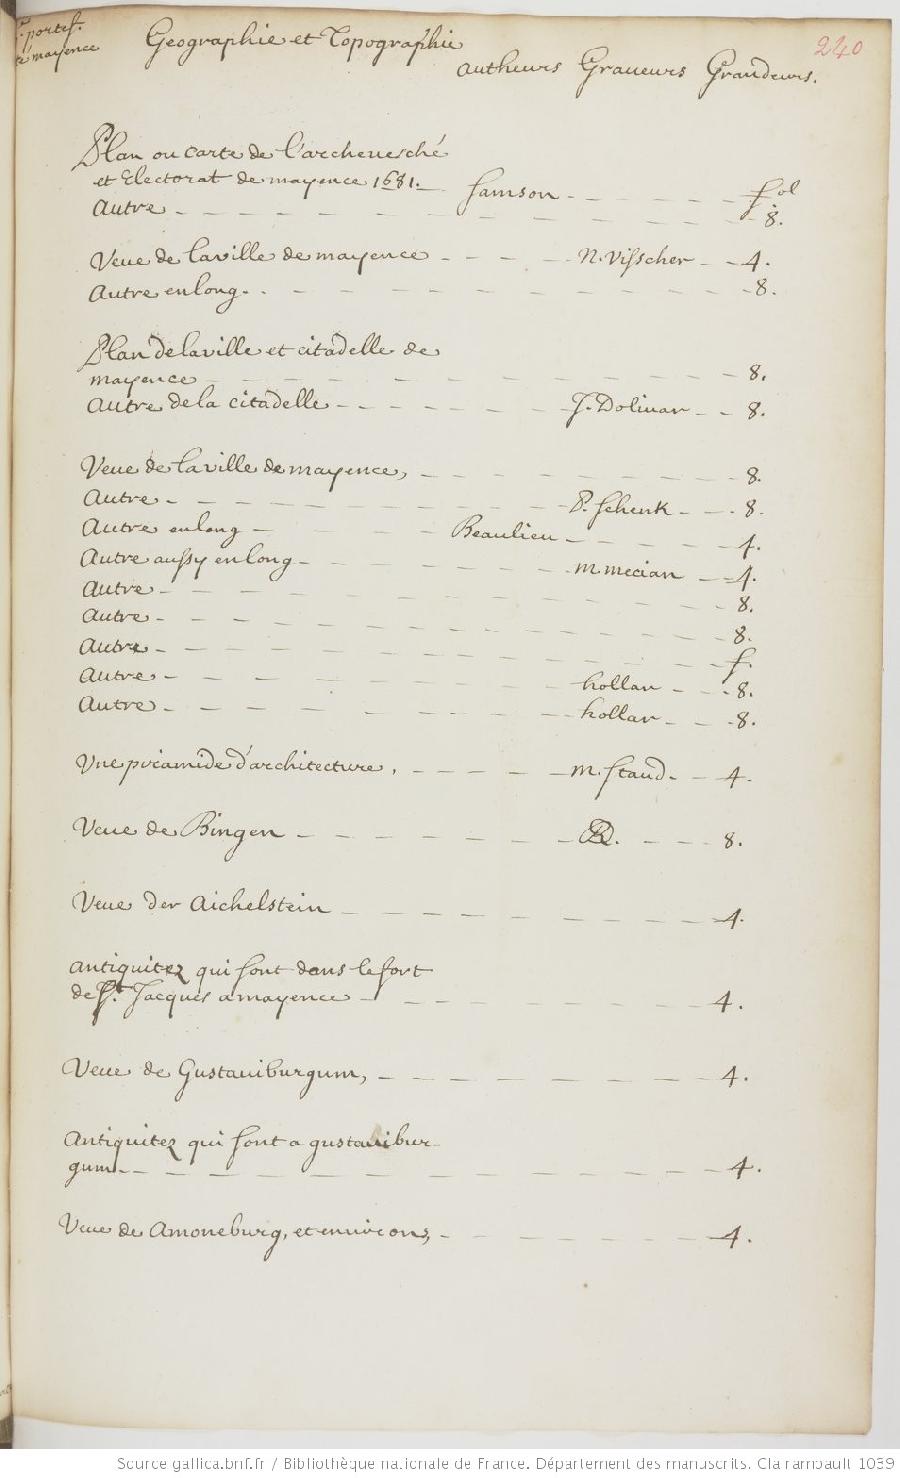 portef.
mayence
Geographie et Topographie
240
autheurs Graueurs Grandeurs.
Plan ou carte de l'archeuesché
et Electorat de mayence 1681. Samson fol
Autre 8.
Veue de la ville de mayence N. Visscher 4.
Autre en long. 8.
Plan de la ville et citadelle de
mayence 8.
Autre de la citadelle J. Doliuar 8.
Veue de la ville de mayence, 8.
Autre P. Schenk 8.
Autre en long Beaulieu 4.
Autre aussy en long m. mecian 4.
Autre 8.
Autre 8.
Autre f.
Autre hollar 8.
Autre hollar 8.
Vne piramide d'architecture, m. Staud. 4.
Veue de Bingen 8.
Veue der Aichelstein 4.
antiquitez qui sont dans le fort
de St. Jacques a mayence 4.
Veue de Gustauiburgum, 4.
Antiquitez qui sont a gustauibur-
gum 4.
Veue de Amoneburg, et enuirons, 4.
Source gallica.bnf.fr / Bibliothèque nationale de France. Département des manuscrits. Clairambault 1039